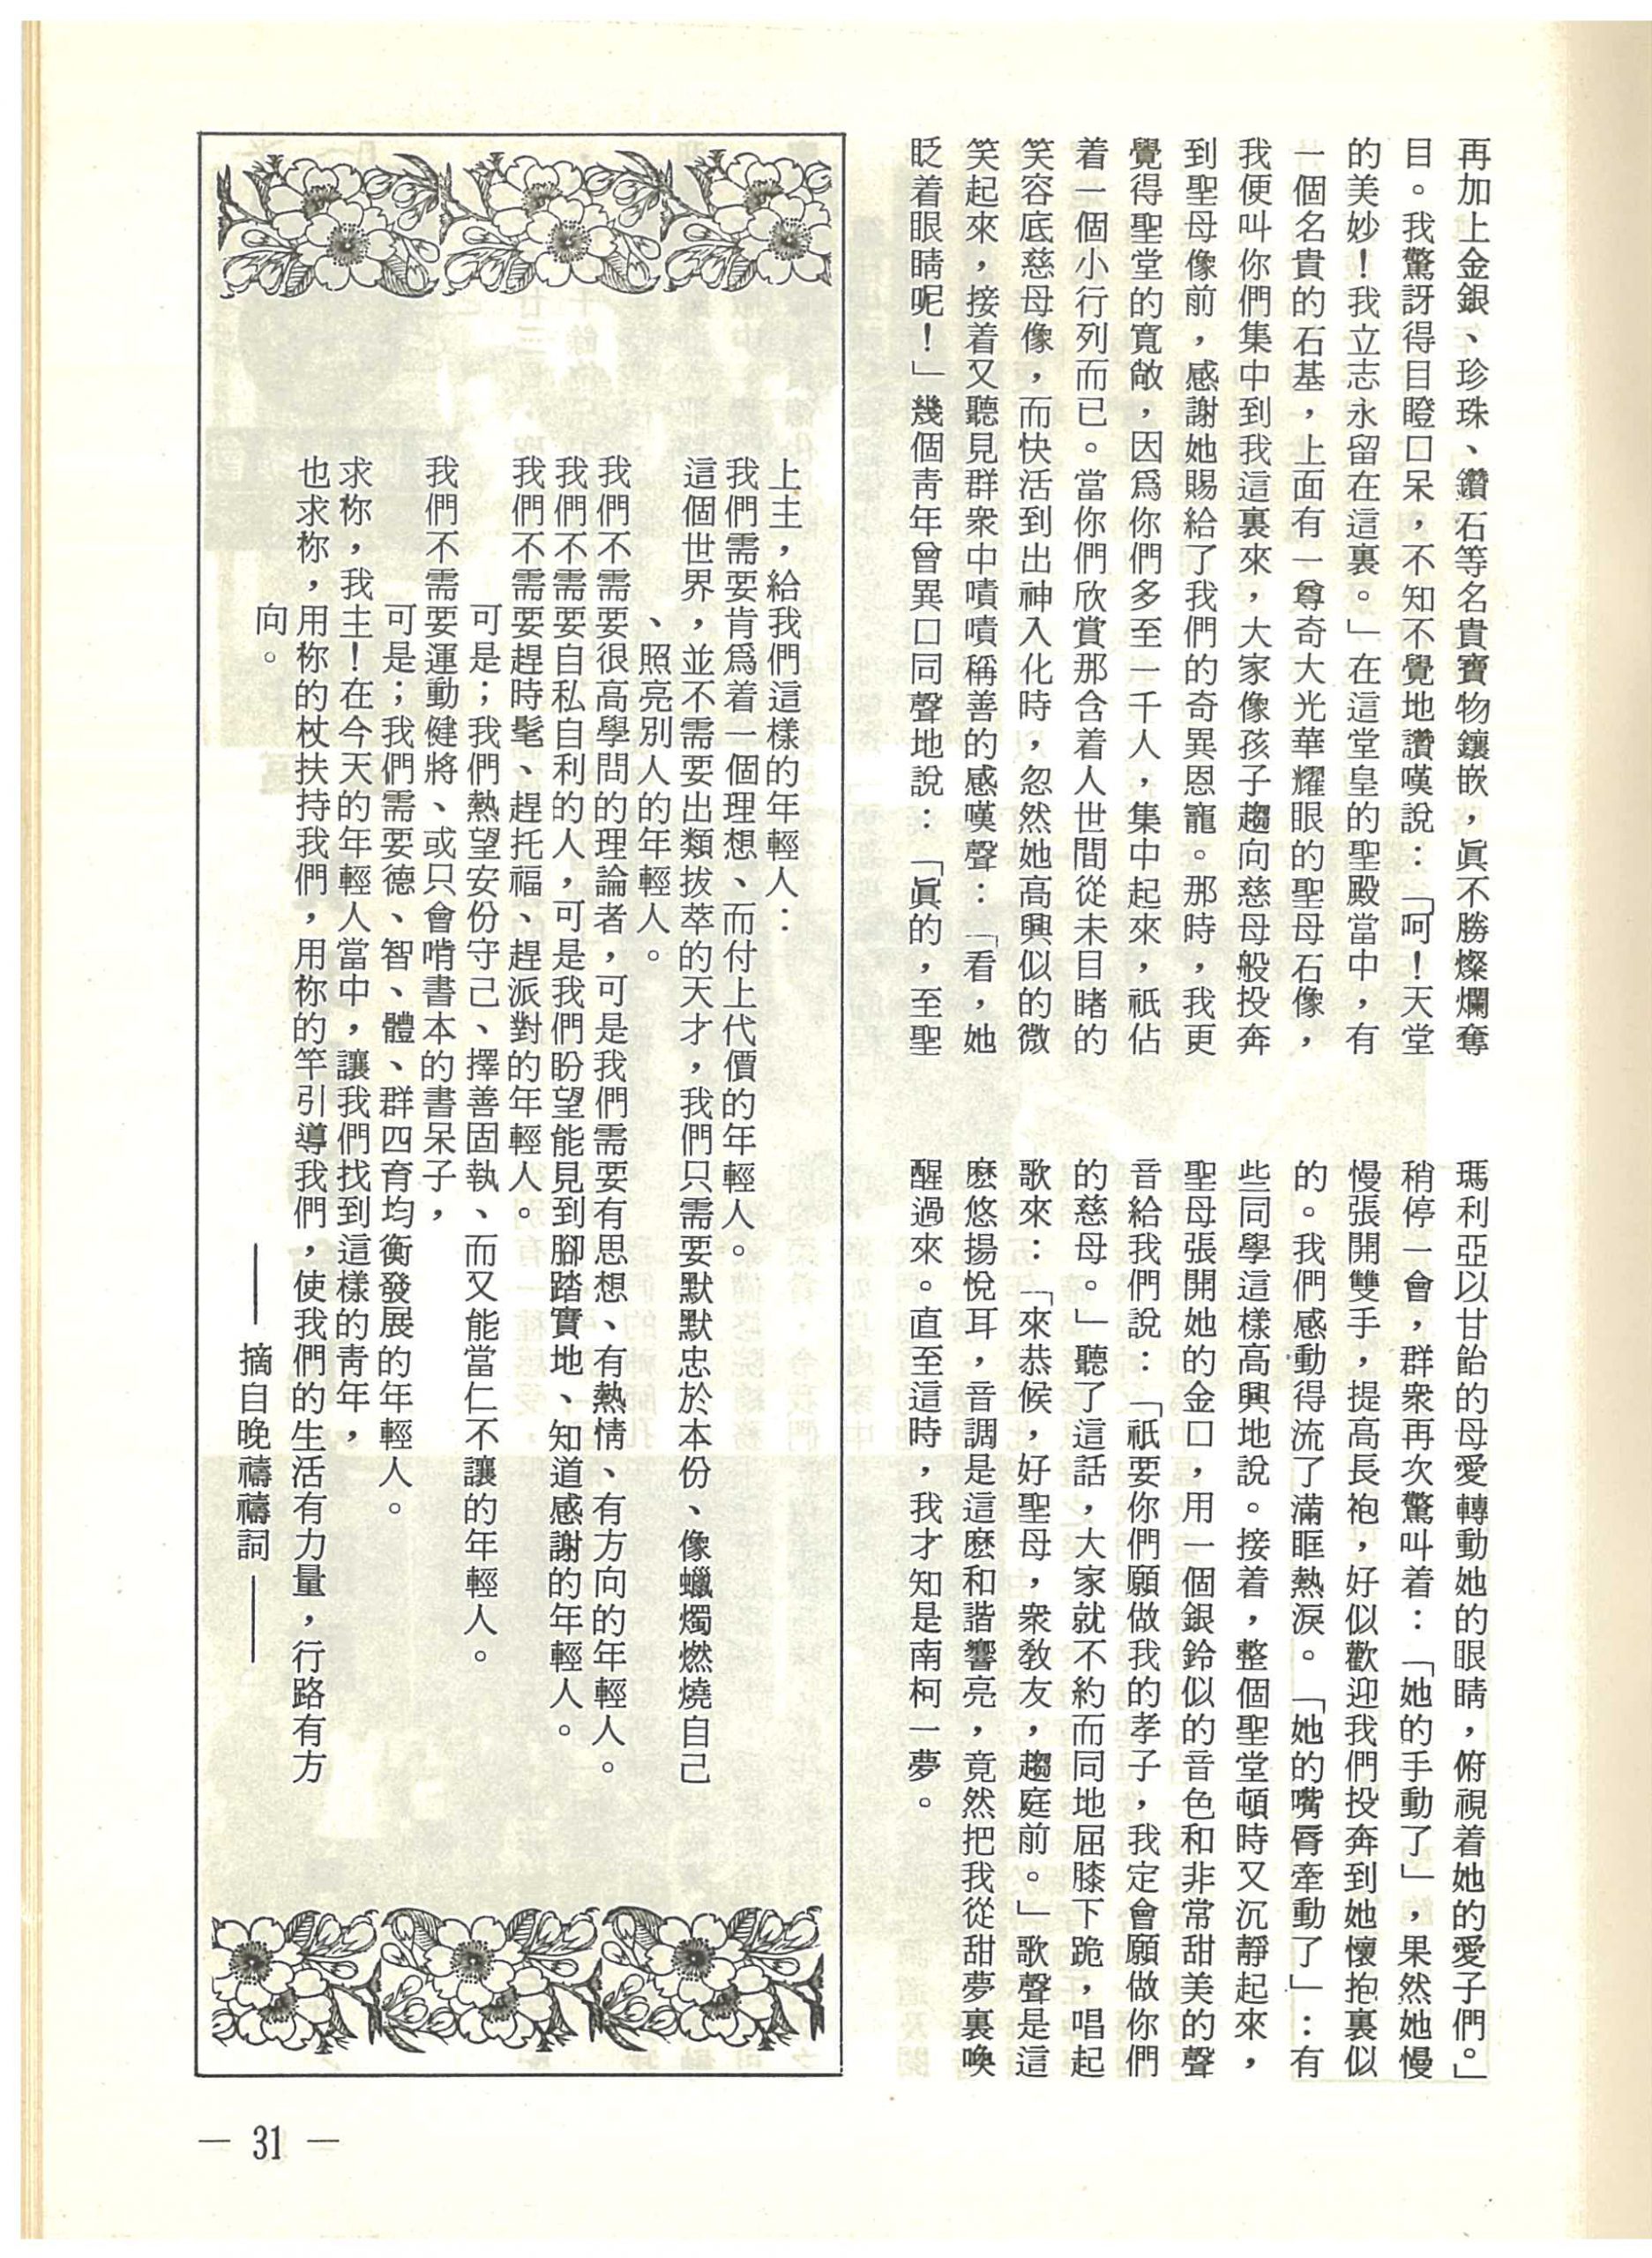 再加上金銀、珍珠、鑽石等名貴寶物鑲嵌，眞不勝燦爛奪
目。我驚訝得目瞪口呆，不知不覺地讚嘆說：「呵！天堂
的美妙！我立志永留在這裏。」在這堂皇的聖殿當中，有
一個名貴的石基，上面有一尊奇大光華耀眼的聖母石像，
我便叫你們集中到我這裏來，大家像孩子趨向慈母般投奔
到聖母像前，感謝她賜給了我們的奇異恩寵。那時，我更
覺得聖堂的寬敞，因爲你們多至一千人，集中起來，祇佔
着一個小行列而已。當你們欣賞那含着人世間從未目睹的
笑容底慈母像，而快活到出神入化時，忽然她高興似的微
笑起來，接着又聽見群衆中嘖嘖稱善的感嘆聲：「看，她
眨着眼睛呢！」幾個靑年曾異口同聲地說：「眞的，至聖
瑪利亞以甘飴的母愛轉動她的眼睛，俯視着她的愛子們。」
稍停一會，群衆再次驚叫着：「她的手動了」，果然她慢
慢張開雙手，提高長袍，好似歡迎我們投奔到她懷抱裏似
的。我們感動得流了滿眶熱淚。「她的嘴唇牽動了」：有
些同學這樣高興地說。接着，整個聖堂頓時又沉靜起來，
聖母張開她的金口，用一個銀鈴似的音色和非常甜美的聲
音給我們說：「祇要你們願做我的孝子，我定會願做你們
的慈母。」聽了這話，大家就不約而同地屈膝下跪，唱起
歌來：「來恭候，好聖母，衆敎友，趨庭前。」歌聲是這
麽悠揚悅耳，音調是這麽和諧響亮，竟然把我從甜夢裏喚
醒過來。直至這時，我才知是南柯一夢。
上主，給我們這樣的年輕人：
我們需要肯爲着一個理想、而付上代價的年輕人。
這個世界，並不需要出類拔萃的天才，我們只需要默默忠於本份、像蠟燭燃燒自己
、照亮別人的年輕人。
我們不需要很高學問的理論者，可是我們需要有思想、有熱情、有方向的年輕人。
我們不需要自私自利的人，可是我們盼望能見到腳踏實地、知道感謝的年輕人。
我們不需要趕時髦、趕托福、趕派對的年輕人。
可是；我們熱望安份守己、擇善固執、而又能當仁不讓的年輕人。
我們不需要運動健將、或只會啃書本的書呆子，
可是；我們需要德、智、體、群四育均衡發展的年輕人。
求祢，我主！在今天的年輕人當中，讓我們找到這樣的靑年，
也求祢，用祢的杖扶持我們，用祢的竿引導我們，使我們的生活有力量，行路有方
向。
——摘自晚禱禱詞——
— 31 —